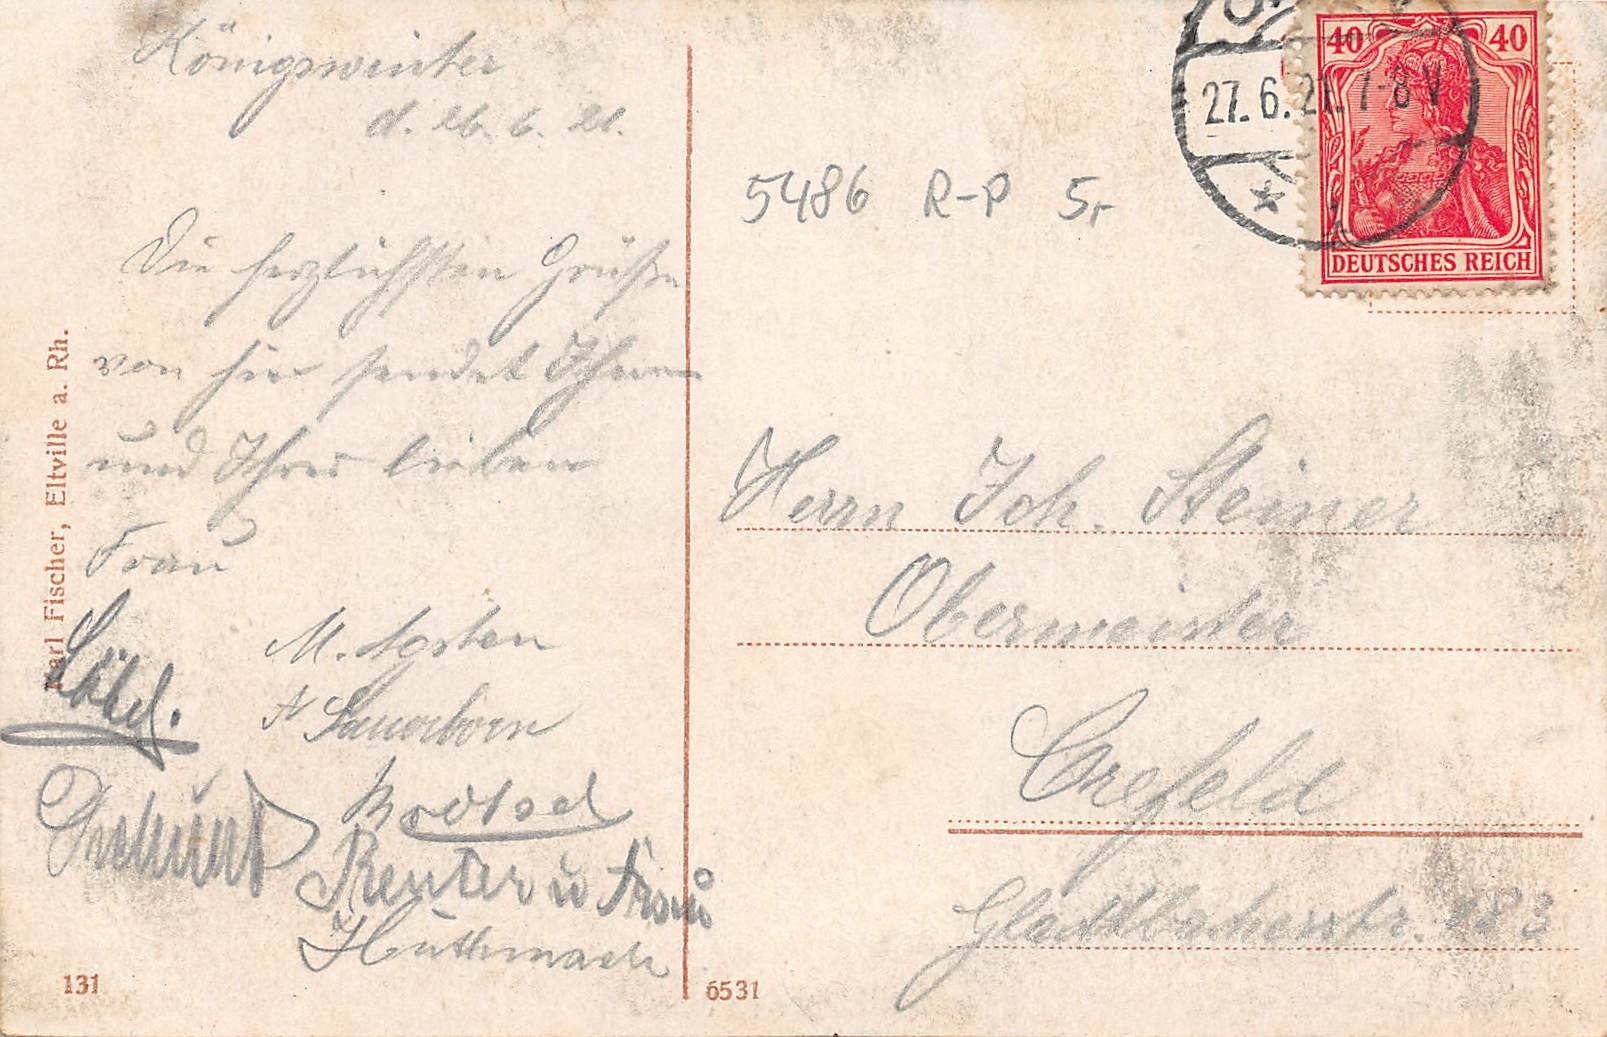 Königswinter
d. 26. 6. 21.
Die herzlichsten Grüße
von hier sendet Ihnen
und Ihrer lieben
Frau
M. Agsten
Sauerborn
Reuter u Frau
Huthmach
Karl Fischer, Eltville a. Rh.
131
6531
5486 R-P 5,-
27. 6. 21. 7-8 V
40 40
DEUTSCHES REICH
Herrn Joh. Steiner
Obermeister
Crefeld
Gladbacherstr. 183